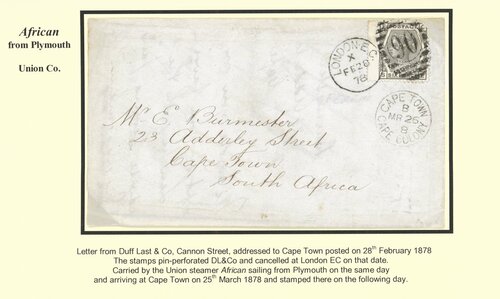 African
from Plymouth
Union Co.
LONDON E.C
X
FE 28
78
90
POSTAGE
CAPE TOWN
B
MR 26
8
CAPE COLONY
Mr. E. Burmester
23 Adderley Street
Cape Town
South Africa
Letter from Duff Last & Co, Cannon Street, addressed to Cape Town posted on 28th February 1878
The stamps pin-perforated DL&Co and cancelled at London EC on that date.
Carried by the Union steamer African sailing from Plymouth on the same day
and arriving at Cape Town on 25th March 1878 and stamped there on the following day.